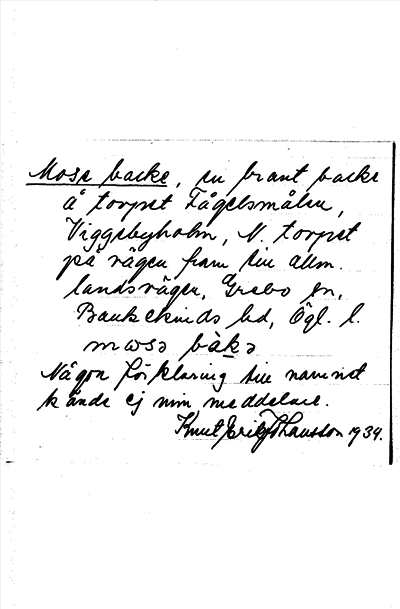 Mose backe, en brant backe
å torpet Fågelsmålen,
Viggebyholm, N. torpet
på vägen fram till allm.
landsvägen, Grebo sn,
Bankekinds hd, Ögl. l.
mωsə bàkə
Någon förklaring till namnet
kände ej min meddelare.
Knut Erik Johansson 1939.